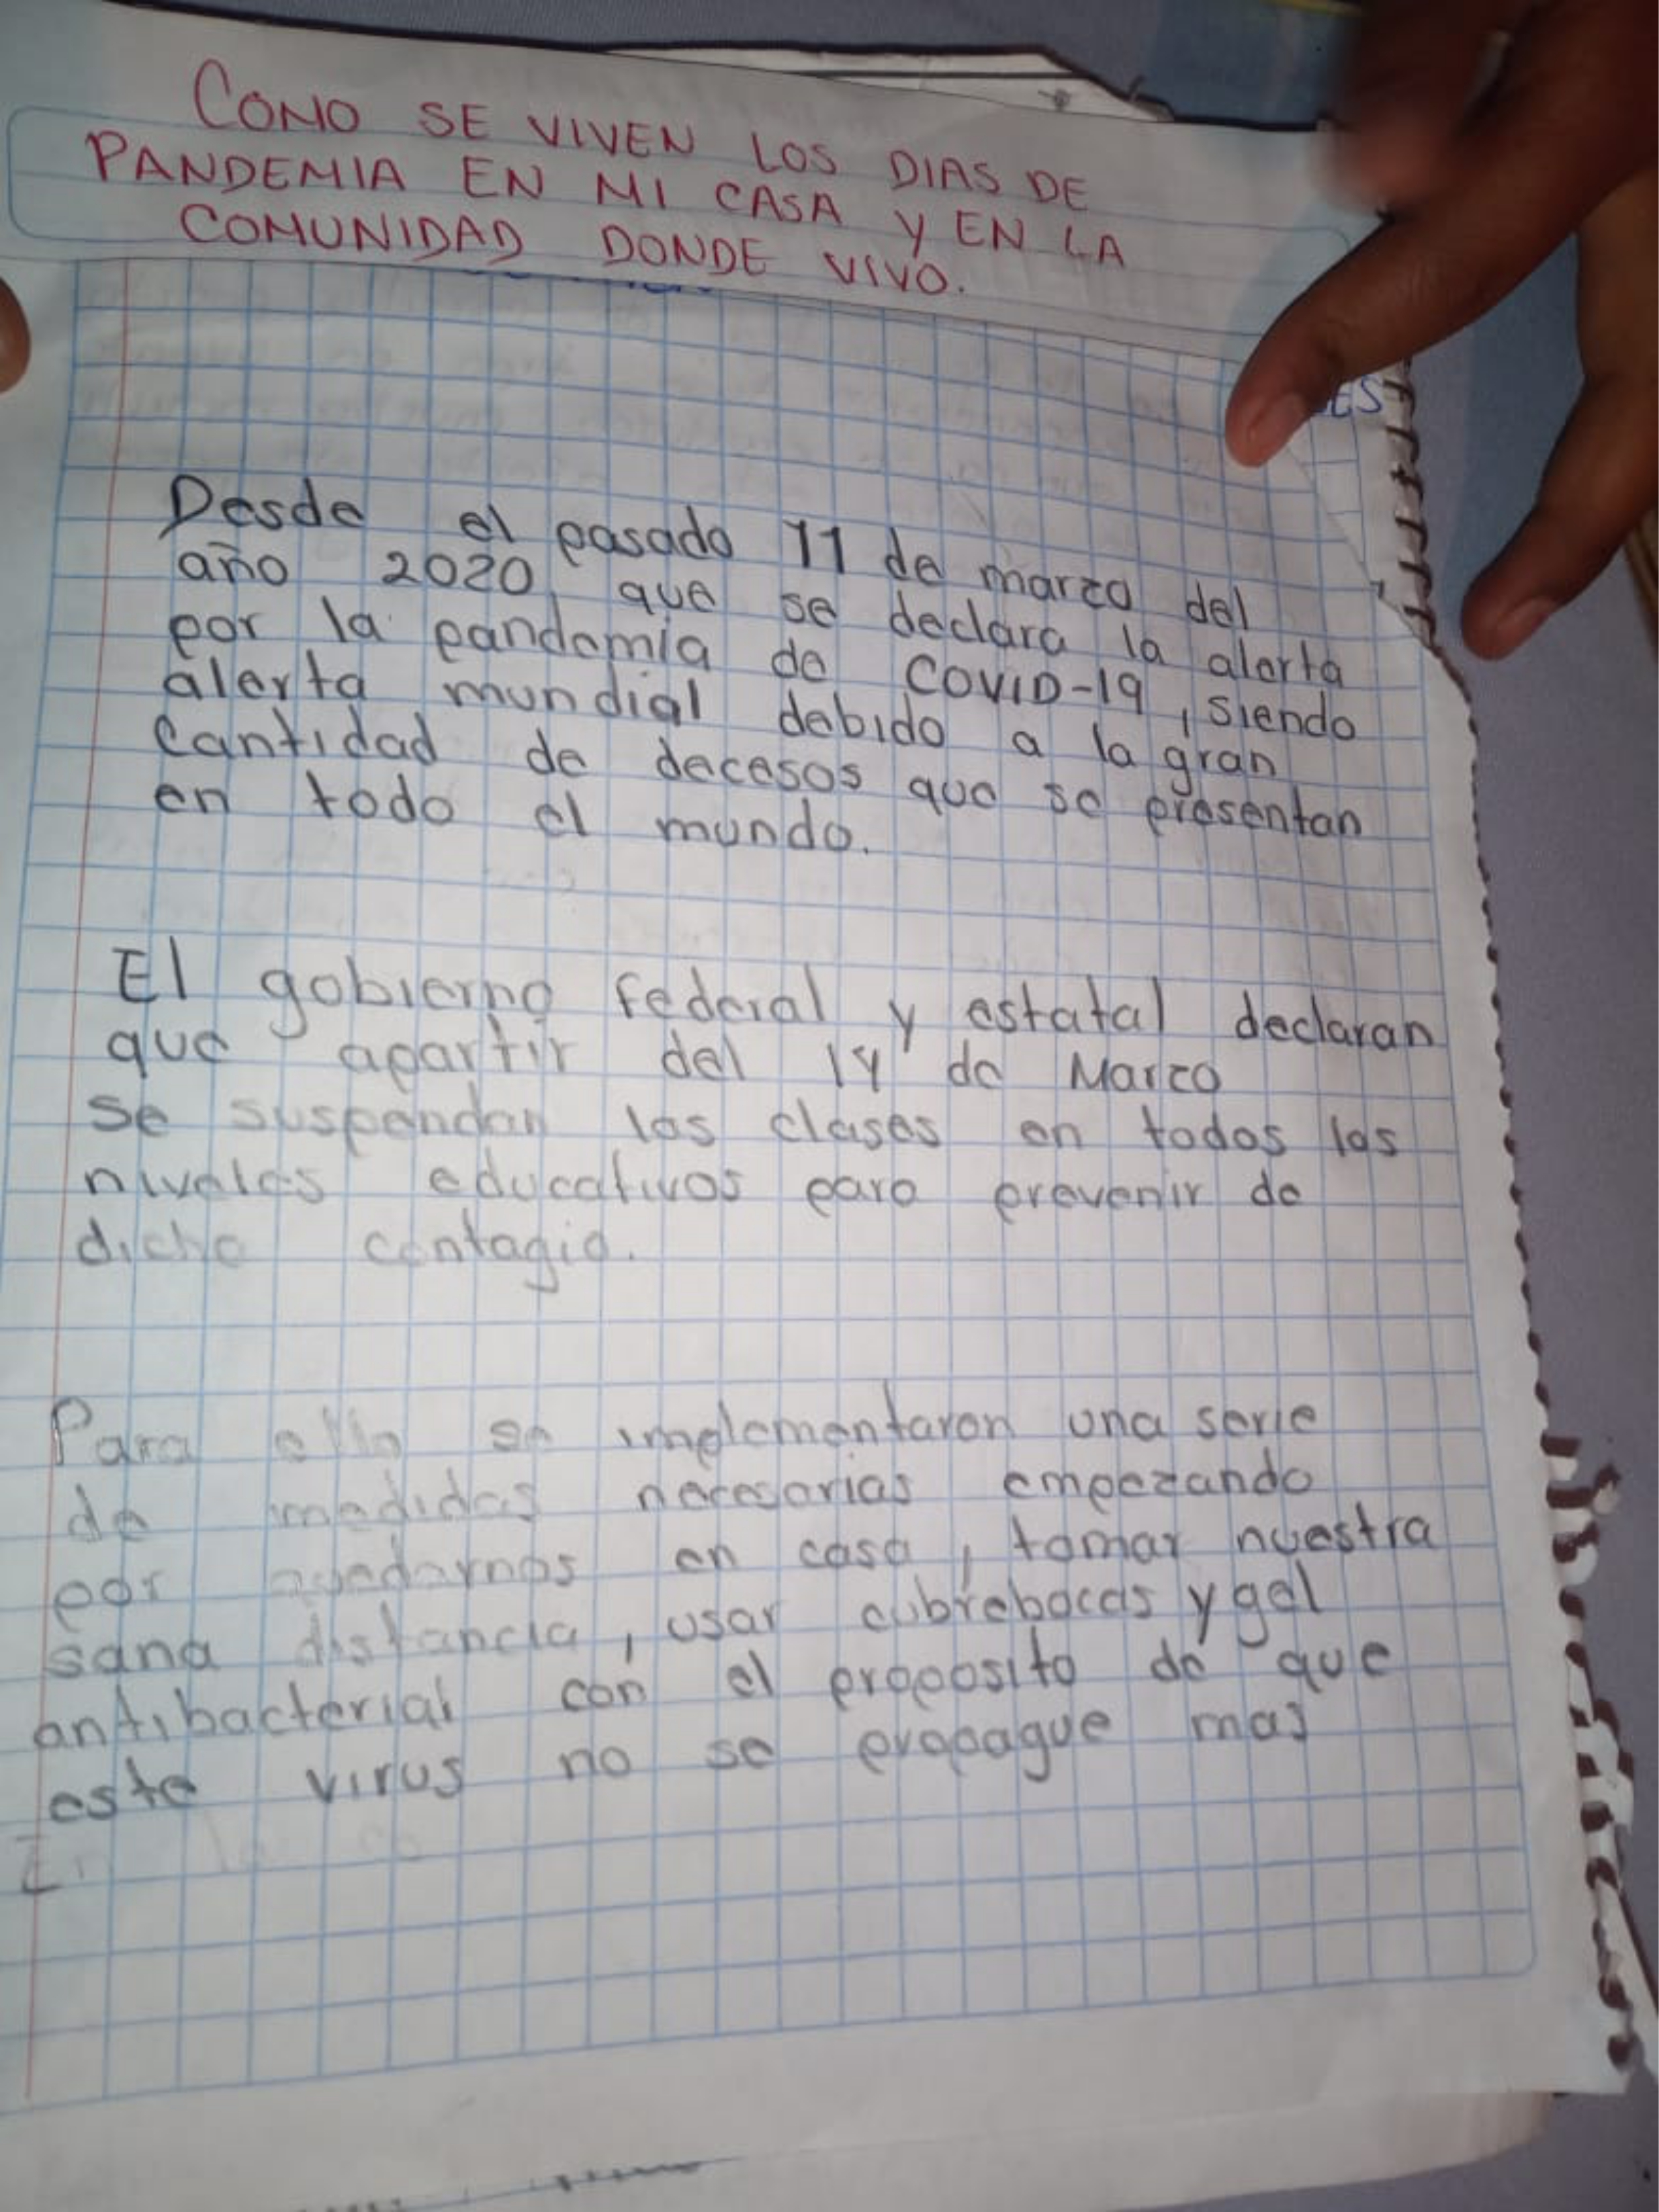 COMO SE VIVEN LOS DIAS DE
PANDEMIA EN MI CASA Y EN LA
COMUNIDAD DONDE VIVO.
ES
Desde el pasado 11 de marzo del
año 2020, que se declara la alerta
por la pandemia de COVID-19, siendo
alerta mundial debido a la gran
Cantidad de decesos que se presentan
en todo el mundo.
El gobierno federal y estatal declaran
que apartir del 14 de Marzo
se suspendan las clases en todos los
niveles educativos para prevenir de
dicho contagio.
Para ello se implementaron una serie
de medidas necesarias empezando
por quedarnos en casa, tomar nuestra
sana distancia, usar cubrebocas y gel
antibacterial con el proposito de que
este virus no se propague mas